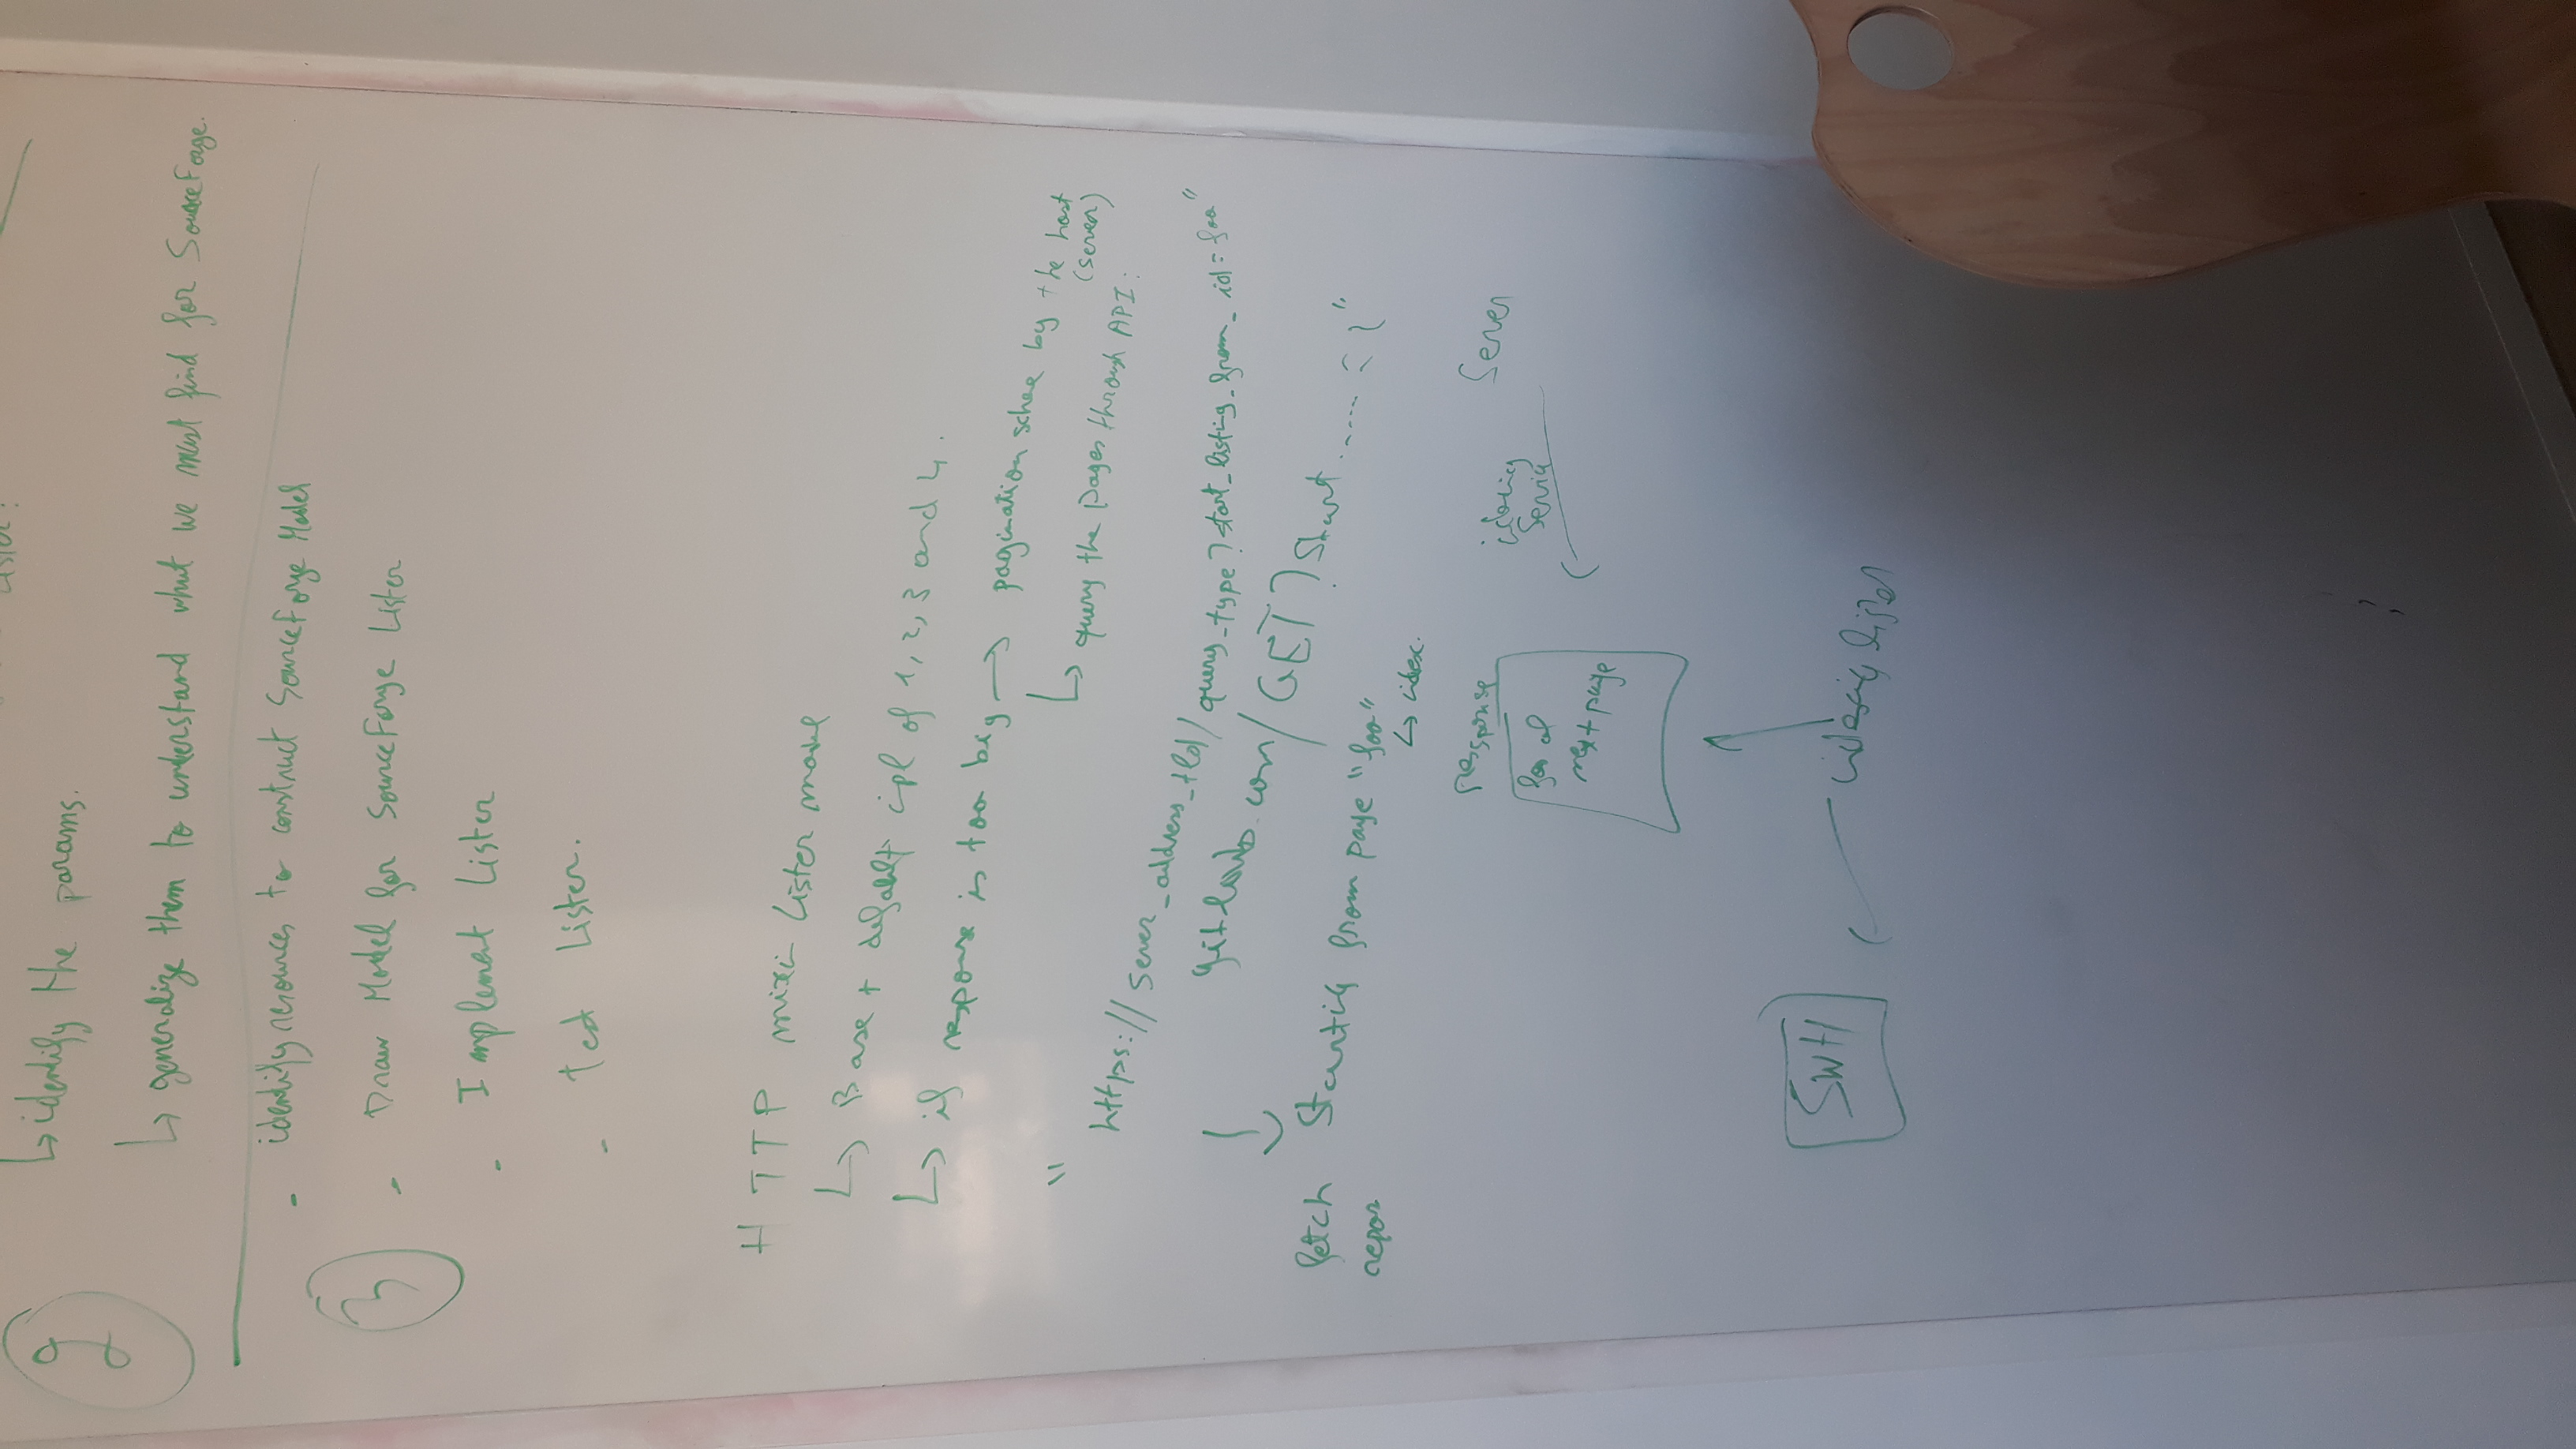 Lister:
2
↳ identify the params.
↳ generalize them to understand what we must find for SourceForge.
- identify resources to construct SourceForge Model
3
- Draw Model for SourceForge Lister
- Implement Lister
- Test Lister.
HTTP mixi Lister model
↳ Base + default ipl of 1, 2, 3 and 4.
↳ if response is too big → pagination scheme by the host
(server)
↳ query the pages through API:
"https://server_address_tld/query_type?start_listing_from_id=foo"
gitlab.com/GET?start..... = 1"
fetch
repos
Starting from page "foo"
↳ index.
Response
foo of
next page
indexing
Service
Server
SWH
indexing lister